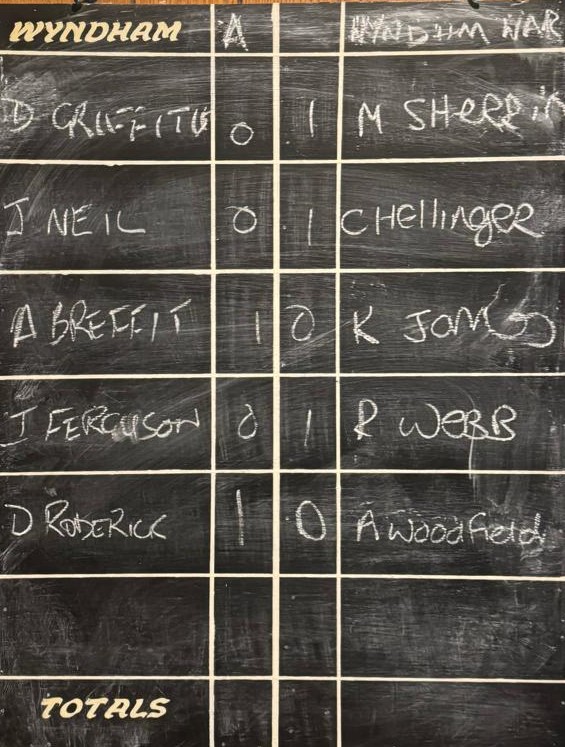 WYNDHAM A WYNDHAM WAR
D GRIFFITH 0 1 M SHERRIN
J NEIL 0 1 C Hellinger
A BREFFIT 1 0 K JONES
J FERGUSON 0 1 R WEBB
D RODERICK 1 0 A Woodfield
TOTALS